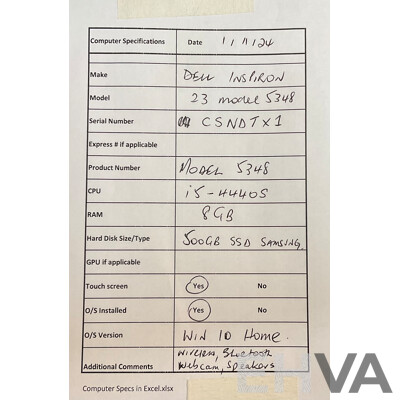 Computer Specifications Date 1/11/24
Make DELL INSPIRON
Model 23 model 5348
Serial Number CSNDTX1
Express # if applicable
Product Number MODEL 5348
CPU i5-4440S
RAM 8GB
Hard Disk Size/Type 500GB SSD SAMSUNG.
GPU if applicable
Touch screen Yes No
O/S Installed Yes No
O/S Version WIN 10 Home.
Wireless, Bluetooth
Additional Comments Webcam, Speakers
Computer Specs in Excel.xlsx
VA